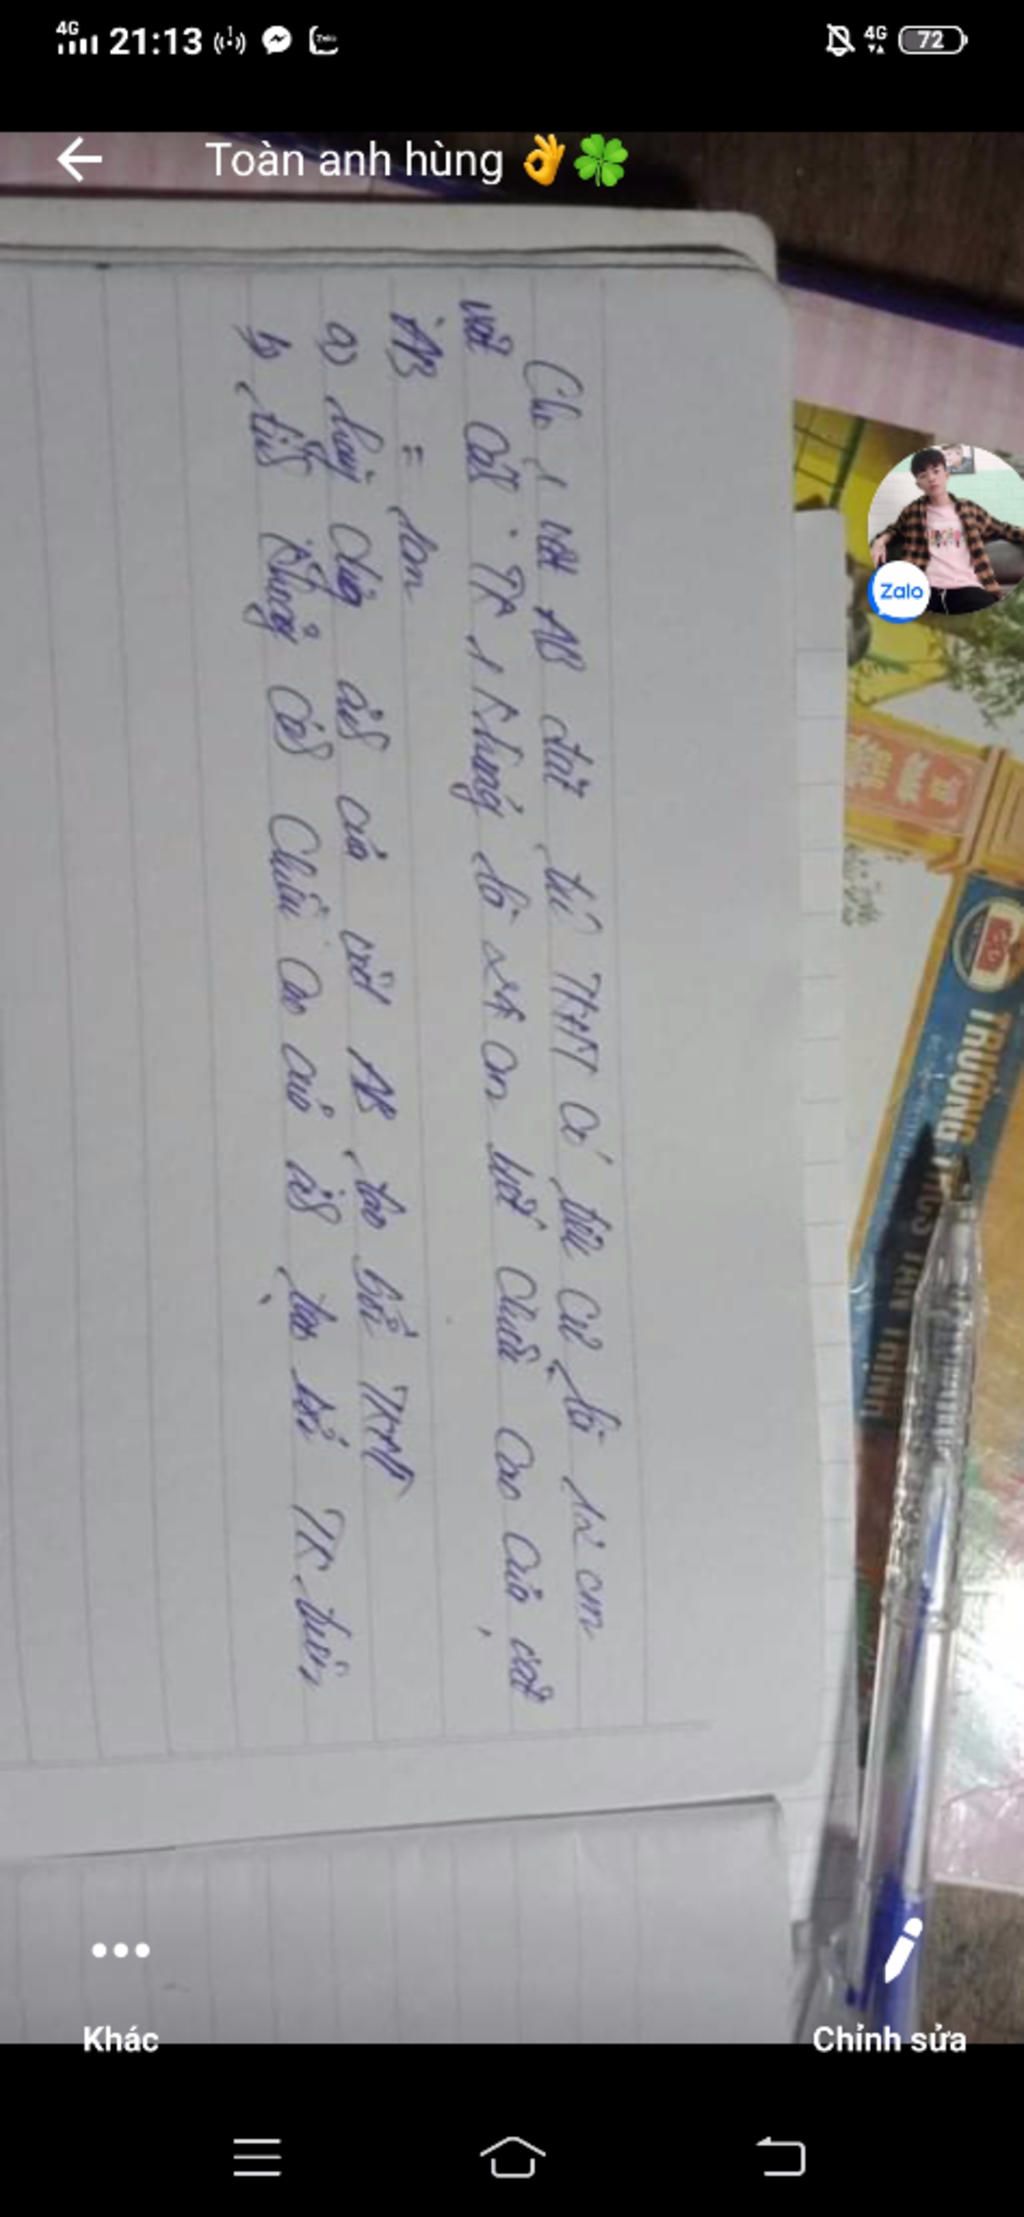 4G 21:13 4G 72
Toàn anh hùng 👌🍀
Zalo
Cho 1 vật AB đặt trước TKHT có tiêu cự là 12 cm
vật cách TK 1 khoảng là 24 cm biết chiều cao của vật
AB = 1cm
a) hãy dựng ảnh của vật AB tạo bởi TKHT
b, tính khoảng cách chiều cao của ảnh tạo bởi TK trên
TRƯỜNG THCS TÂN THỊNH
Khác
Chỉnh sửa